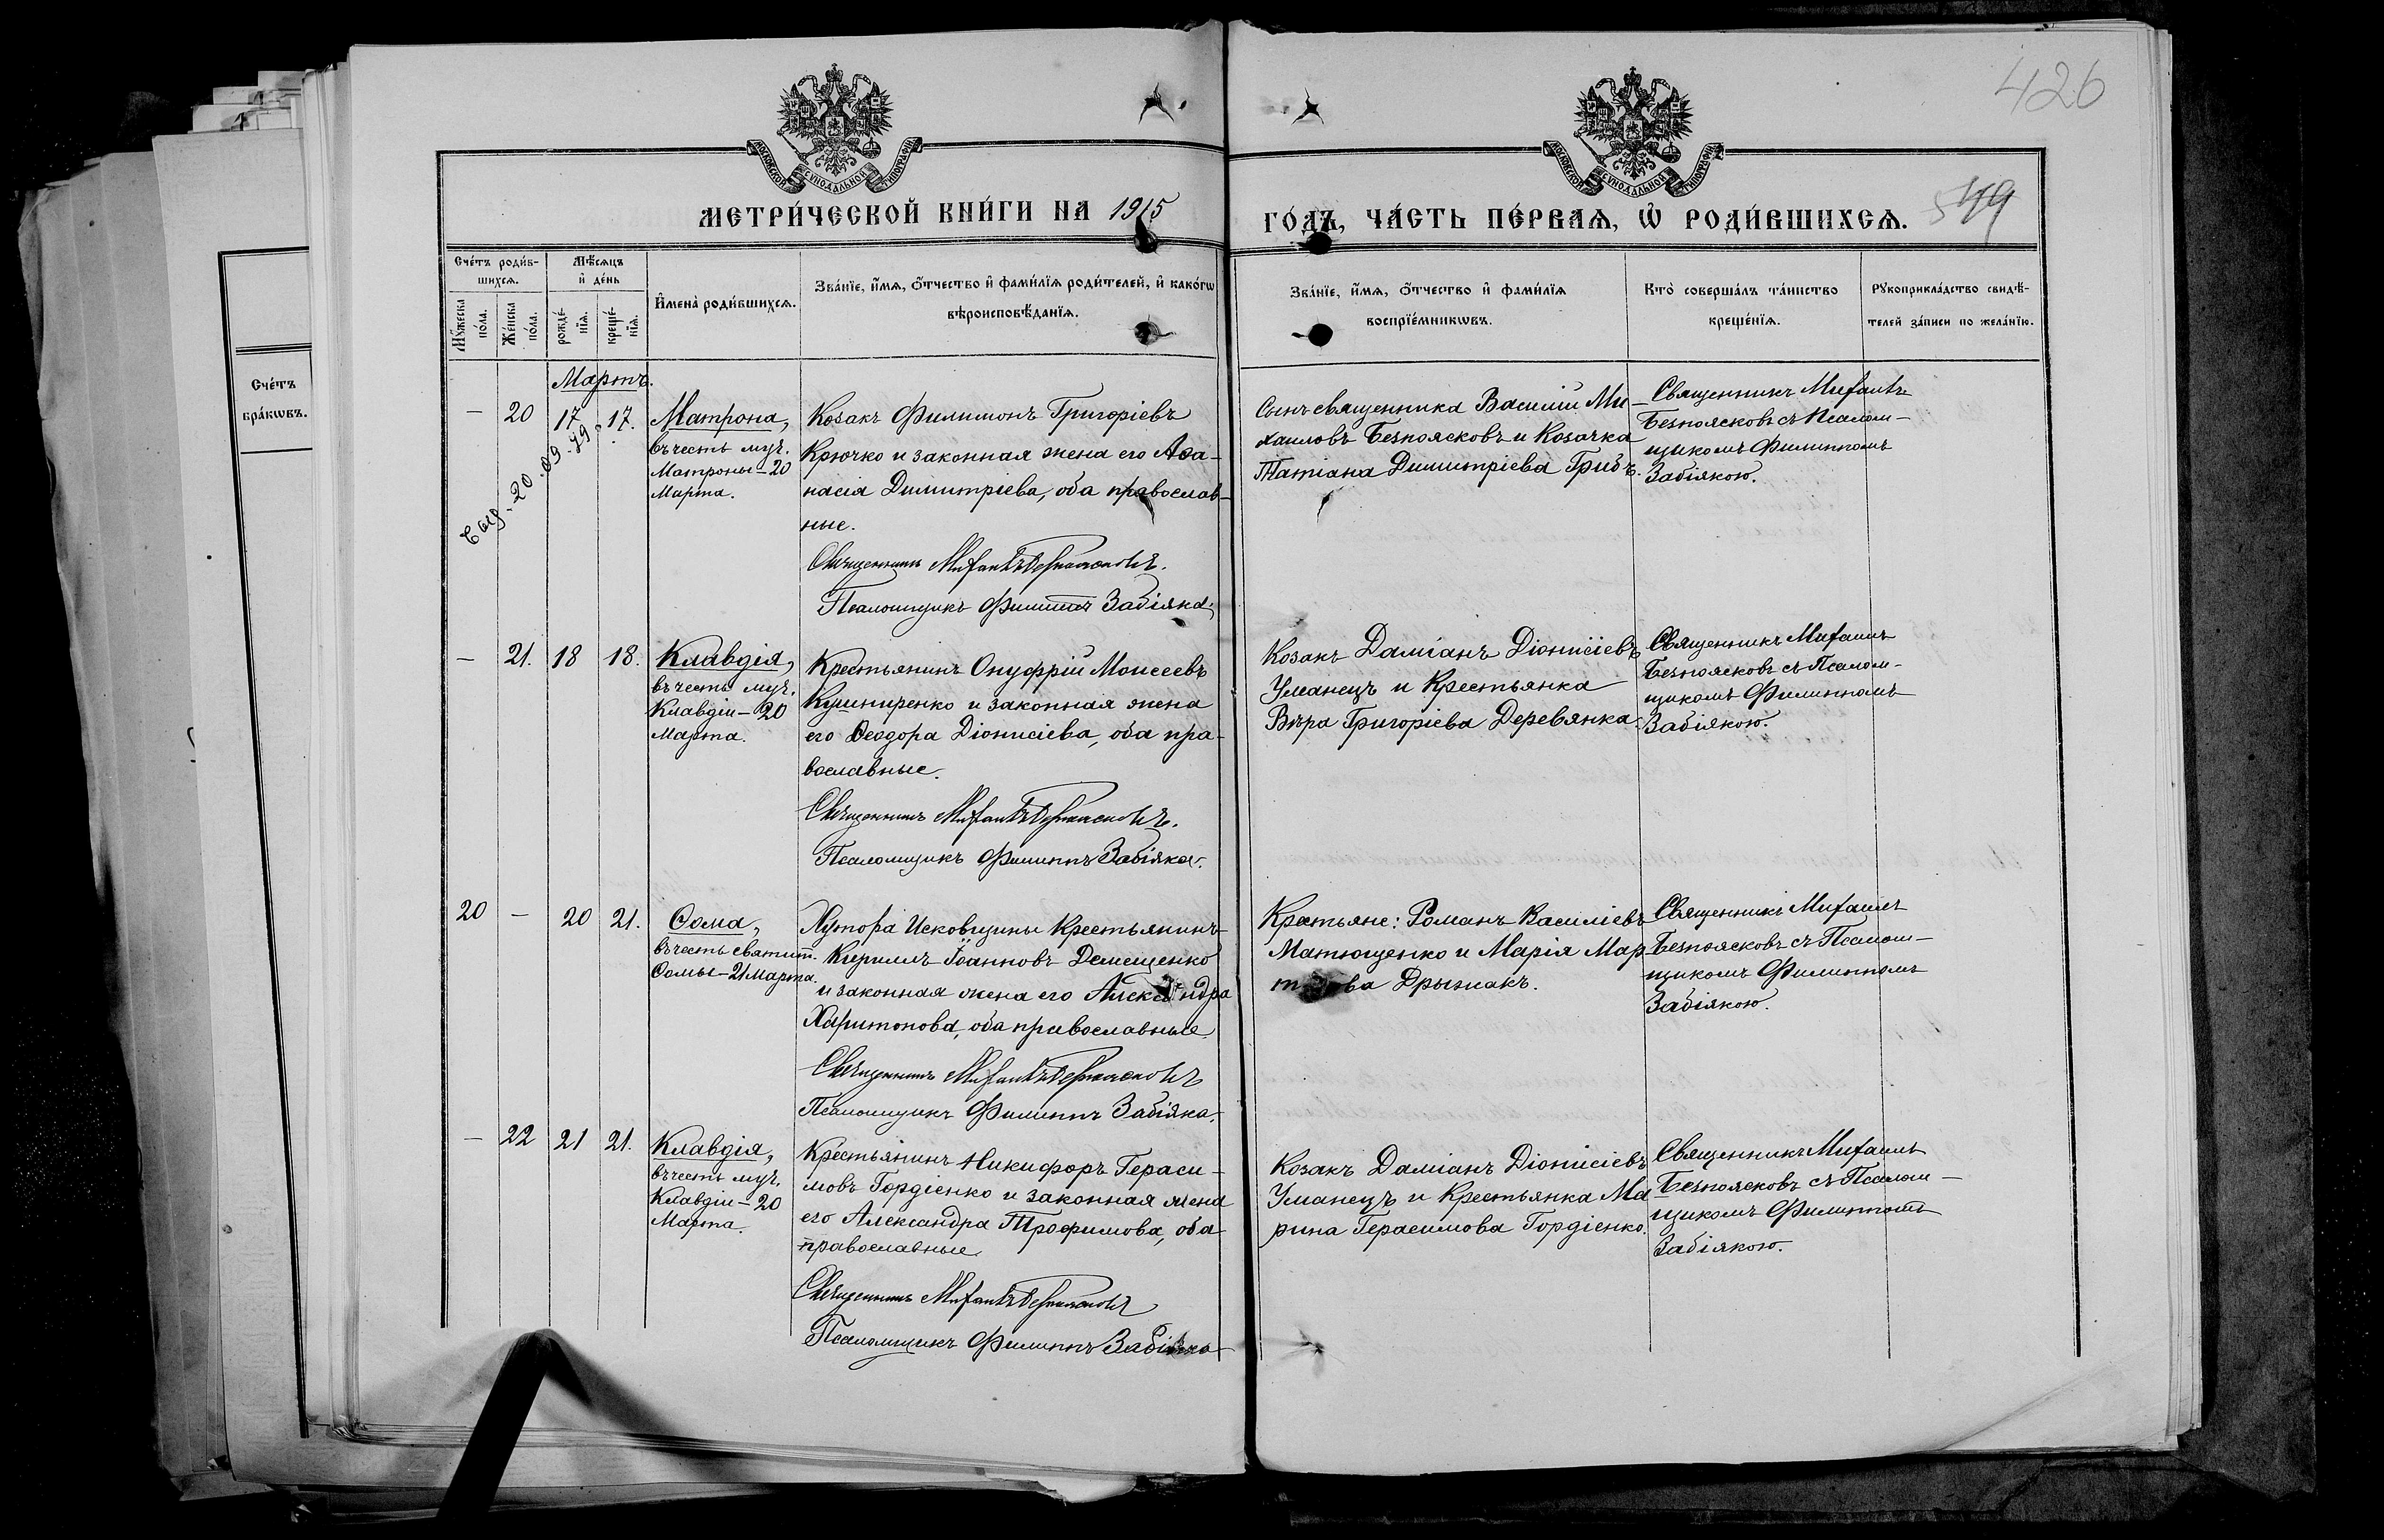 426
МОСКОВСКОЙ СѴНОДАЛЬНОЙ ТИПОГРАФІИ
МОСКОВСКОЙ СѴНОДАЛЬНОЙ ТИПОГРАФІИ
МЕТРИ́ЧЕСКОЙ КНИ́ГИ НА 1915
ГО́ДЪ, ЧА́СТЬ ПЕ́РВАѦ, Ѡ҆ РОДИ́ВШИХСѦ.
Сче́тъ
бра́кѡвъ.
Сче́тъ роди́в-
шихсѧ.
Мѣ́сѧцъ
и҆ де́нь
Мꙋ́жеска
по́ла.
Же́нска
по́ла.
рожде́-
нїѧ.
креще́-
нїѧ.
И҆мена̀ роди́вшихсѧ.
Зва́нїе, и҆́мѧ, ѻ҆́тчество и҆ фами́лїѧ роди́телей, и҆ како́гѡ
вѣроисповѣ́данїѧ.
Зва́нїе, и҆́мѧ, ѻ҆́тчество и҆ фами́лїѧ
воспрїе́мникѡвъ.
Кто̀ соверша́лъ та́инство
креще́нїѧ.
Рꙋкоприкла́дство свидѣ́-
телей за́писи по жела́нїю.
Мартъ.
— 20 17 17.
Матрона,
въ честь муч.
Матроны – 20
Марта.
Козакъ Филимонъ Григоріевъ
Крючко и законная жена его Аѳа-
насія Димитріева, оба православ-
ные.
Священникъ Михаилъ Безпоясковъ.
Псаломщикъ Филиппъ Забіяка.
Сынъ священника Василій Ми-
хаиловъ Безпоясковъ и Козачка
Татіана Димитріева Грибъ.
Священникъ Михаилъ
Безпоясковъ съ Псалом-
щикомъ Филиппомъ
Забіякою.
— 21. 18 18.
Клавдія,
въ честь муч.
Клавдіи – 20
Марта.
Крестьянинъ Онуфрій Моисеевъ
Кушниренко и законная жена
его Ѳеодора Діонисіева, оба пра-
вославные.
Священникъ Михаилъ Безпоясковъ.
Псаломщикъ Филиппъ Забіяка.
Козакъ Даміанъ Діонисіевъ
Уманецъ и Крестьянка
Вѣра Григоріева Деревянка.
Священникъ Михаилъ
Безпоясковъ съ Псалом-
щикомъ Филиппомъ
Забіякою.
20 — 20 21.
Ѳома,
въ честь святит.
Ѳомы – 21 Марта.
Хутора Исковщины Крестьянинъ
Кириллъ Іоанновъ Демещенко
и законная жена его Александра
Харитонова, оба православные.
Священникъ Михаилъ Безпоясковъ
Псаломщикъ Филиппъ Забіяка.
Крестьяне: Романъ Василіевъ
Матющенко и Марія Мар-
ва Дрыжакъ.
Священникъ Михаилъ
Безпоясковъ съ Псалом-
щикомъ Филиппомъ
Забіякою.
— 22 21 21.
Клавдія,
въ честь муч.
Клавдіи – 20
Марта.
Крестьянинъ Никифоръ Гераси-
мовъ Гордіенко и законная жена
его Александра Трофимова, оба
православные.
Священникъ Михаилъ Безпоясковъ
Псаломщикъ Филиппъ Забіяка
Козакъ Даміанъ Діонисіевъ
Уманецъ и Крестьянка Ма-
рина Герасимова Гордіенко.
Священникъ Михаилъ
Безпоясковъ съ Псалом-
щикомъ Филиппомъ
Забіякою.